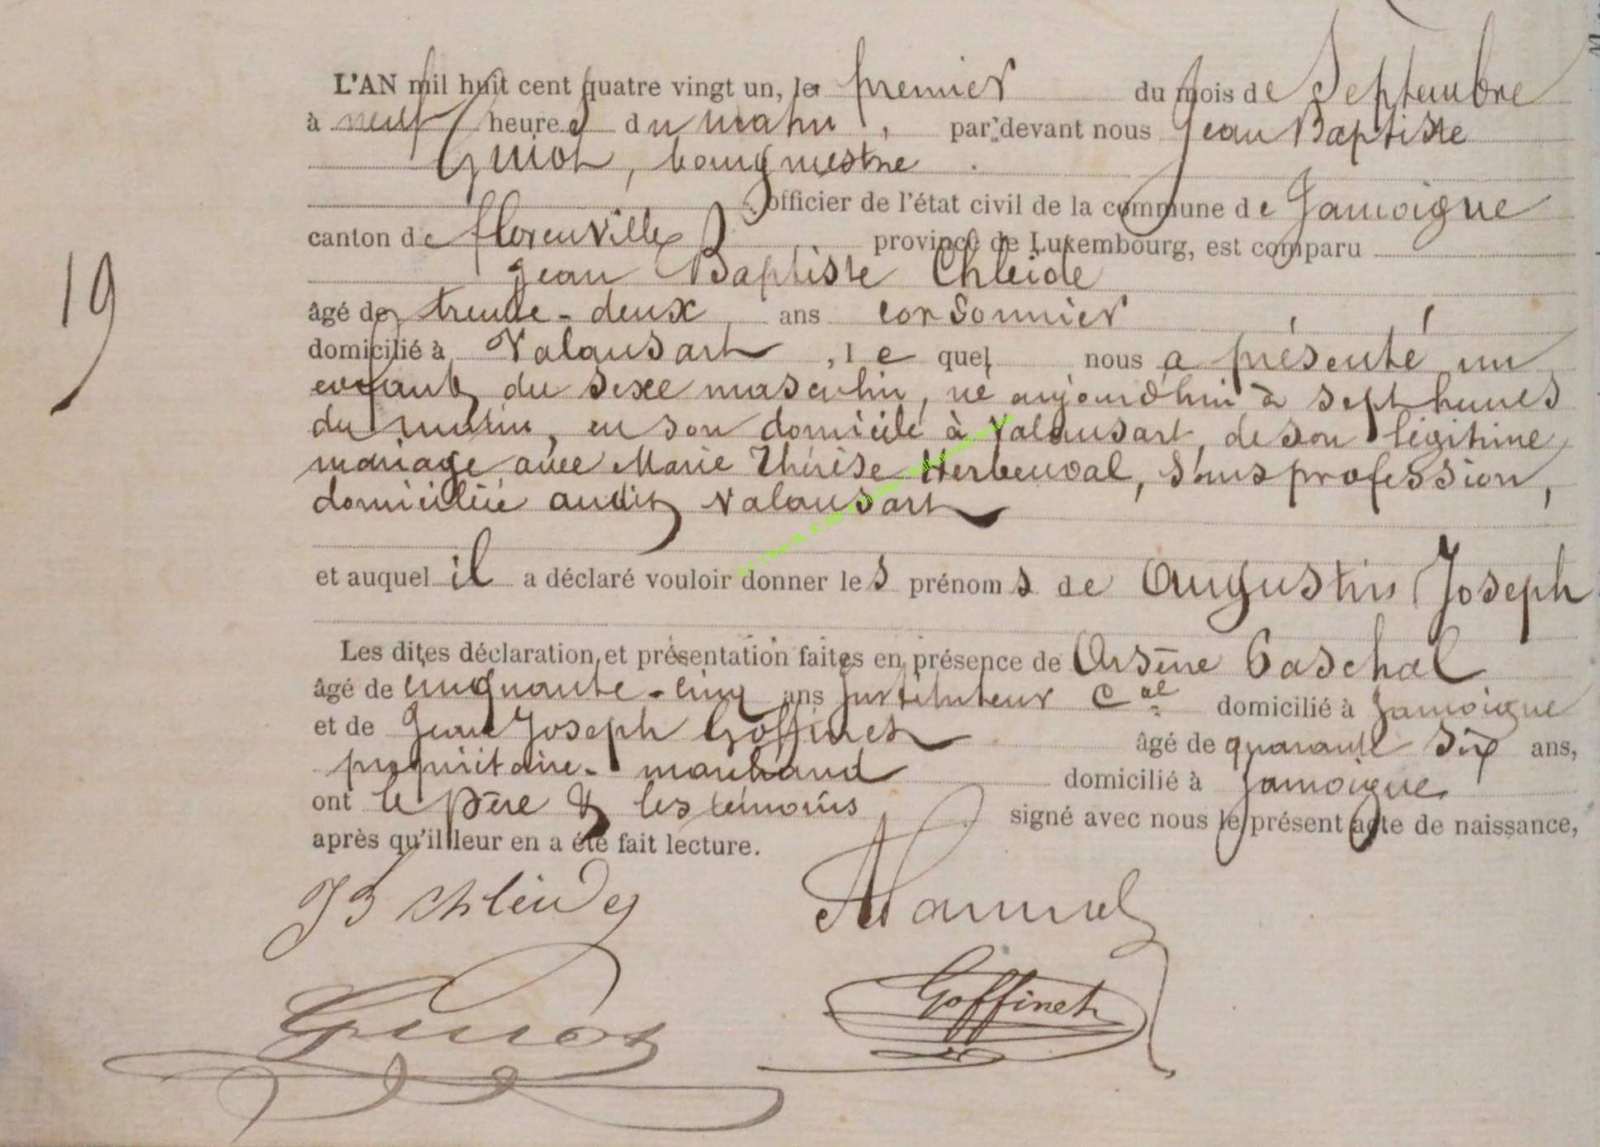 L'AN mil huit cent quatre vingt un, le premier du mois de Septembre
à neuf heures du matin, par devant nous Jean Baptiste
Guiot, bourgmestre
officier de l'état civil de la commune de Jamoigne
canton de florenville province de Luxembourg, est comparu
Jean Baptiste Chleide
19
âgé de trente-deux ans cordonnier
domicilié à Valansart, le quel nous a présenté un
enfant du sexe masculin, né aujourd'hui à sept heures
du matin, en son domicile à Valansart, de son légitime
mariage avec Marie Thérèse Herbeuval, sans profession,
domiciliée audit Valansart
et auquel il a déclaré vouloir donner les prénoms de Augustin Joseph
Les dites déclaration et présentation faites en présence de Arsène Paschal
âgé de cinquante-cinq ans Instituteur Cal domicilié à Jamoigne
et de Jean Joseph Goffinet âgé de quarante six ans,
propriétaire-marchand domicilié à Jamoigne
ont le père & les témoins signé avec nous le présent acte de naissance,
après qu'il leur en a été fait lecture.
JB Chleide
Guiot Goffinet